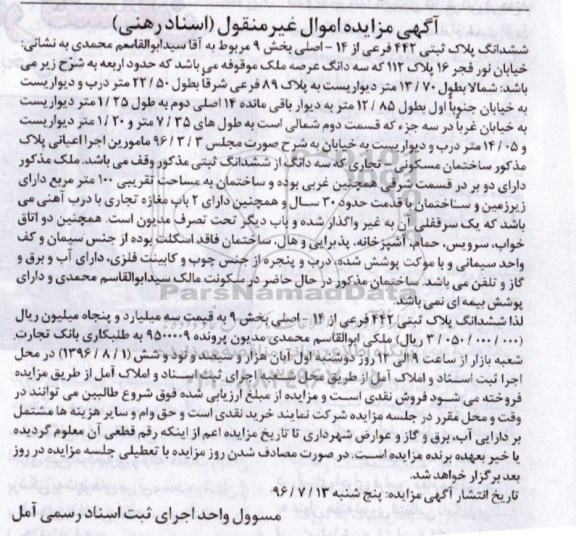 آگهی مزایده اموال غیر منقول (اسناد رهنی)
ششدانگ پلاک ثبتی ۴۴۲ فرعی از ۱۴ - اصلی بخش ۹ مربوط به آقا سیدابوالقاسم محمدی به نشانی:
خیابان نور فجر ۱۶ پلاک ۱۱۲ که سه دانگ عرصه ملک موقوفه می باشد که حدود اربعه به شرح زیر می
باشد: شمالا بطول ۱۳/۷۰ متر دیواریست به پلاک ۸۹ فرعی شرقاً بطول ۲۲/۵۰ متر درب و دیواریست
به خیابان جنوباً اول بطول ۱۲/۸۵ متر به دیوار باقی مانده ۱۴ اصلی دوم به طول ۱/۲۵ متر دیواریست
به خیابان غرباً در سه جزء که قسمت دوم شمالی است به طول های ۷/۳۵ متر و ۱/۲۰ متر دیواریست
و ۱۴/۰۵ متر درب و دیواریست به خیابان به شرح صورت مجلس ۹۶/۳/۳ مامورین اجرا اعیانی پلاک
مذکور ساختمان مسکونی - تجاری که سه دانگ از ششدانگ ثبتی مذکور وقف می باشد. ملک مذکور
دارای دو بر در قسمت شرقی همچنین غربی بوده و ساختمان به مساحت تقریبی ۱۰۰ متر مربع دارای
زیرزمین و ساختمان با قدمت حدود ۳۰ سال و همچنین دارای ۲ باب مغازه تجاری با درب آهنی می
باشد که یک سرقفلی آن به غیر واگذار شده و باب دیگر تحت تصرف مدیون است. همچنین دو اتاق
خواب، سرویس، حمام، آشپزخانه، پذیرایی و هال، ساختمان فاقد اسکلت بوده از جنس سیمان و کف
واحد سیمانی و با موکت پوشش شده، درب و پنجره از جنس چوب و کابینت فلزی، دارای آب و برق و
گاز و تلفن می باشد. ساختمان مذکور در حال حاضر در سکونت مالک سیدابوالقاسم محمدی و دارای
پوشش بیمه ای نمی باشد.
لذا ششدانگ پلاک ثبتی ۴۴۲ فرعی از ۱۴ - اصلی بخش ۹ به قیمت سه میلیارد و پنجاه میلیون ریال
(۳/۰۵۰/۰۰۰/۰۰۰ ریال) ملکی ابوالقاسم محمدی مدیون پرونده ۹۵۰۰۰۰۹ به طلبکاری بانک تجارت
شعبه بازار از ساعت ۹ الی ۱۲ روز دوشنبه اول آبان هزار و سیصد و نود و شش (۱۳۹۶/۸/۱) در محل
اجرا ثبت اسناد و املاک آمل از طریق محل شعبه اجرای ثبت اسناد و املاک آمل از طریق مزایده
فروخته می شود فروش نقدی است و مزایده از مبلغ ارزیابی شده فوق شروع طالبین می توانند در
وقت و محل مقرر در جلسه مزایده شرکت نمایند خرید نقدی است و حق وام و سایر هزینه ها مشتمل
بر دارایی آب، برق و گاز و عوارض شهرداری تا تاریخ مزایده اعم از اینکه رقم قطعی آن معلوم گردیده
یا خیر بعهده برنده مزایده است. در صورت مصادف شدن روز مزایده با تعطیلی جلسه مزایده در روز
بعد برگزار خواهد شد.
تاریخ انتشار آگهی مزایده: پنج شنبه ۹۶/۷/۱۳
مسوول واحد اجرای ثبت اسناد رسمی آمل
ParsNamadData